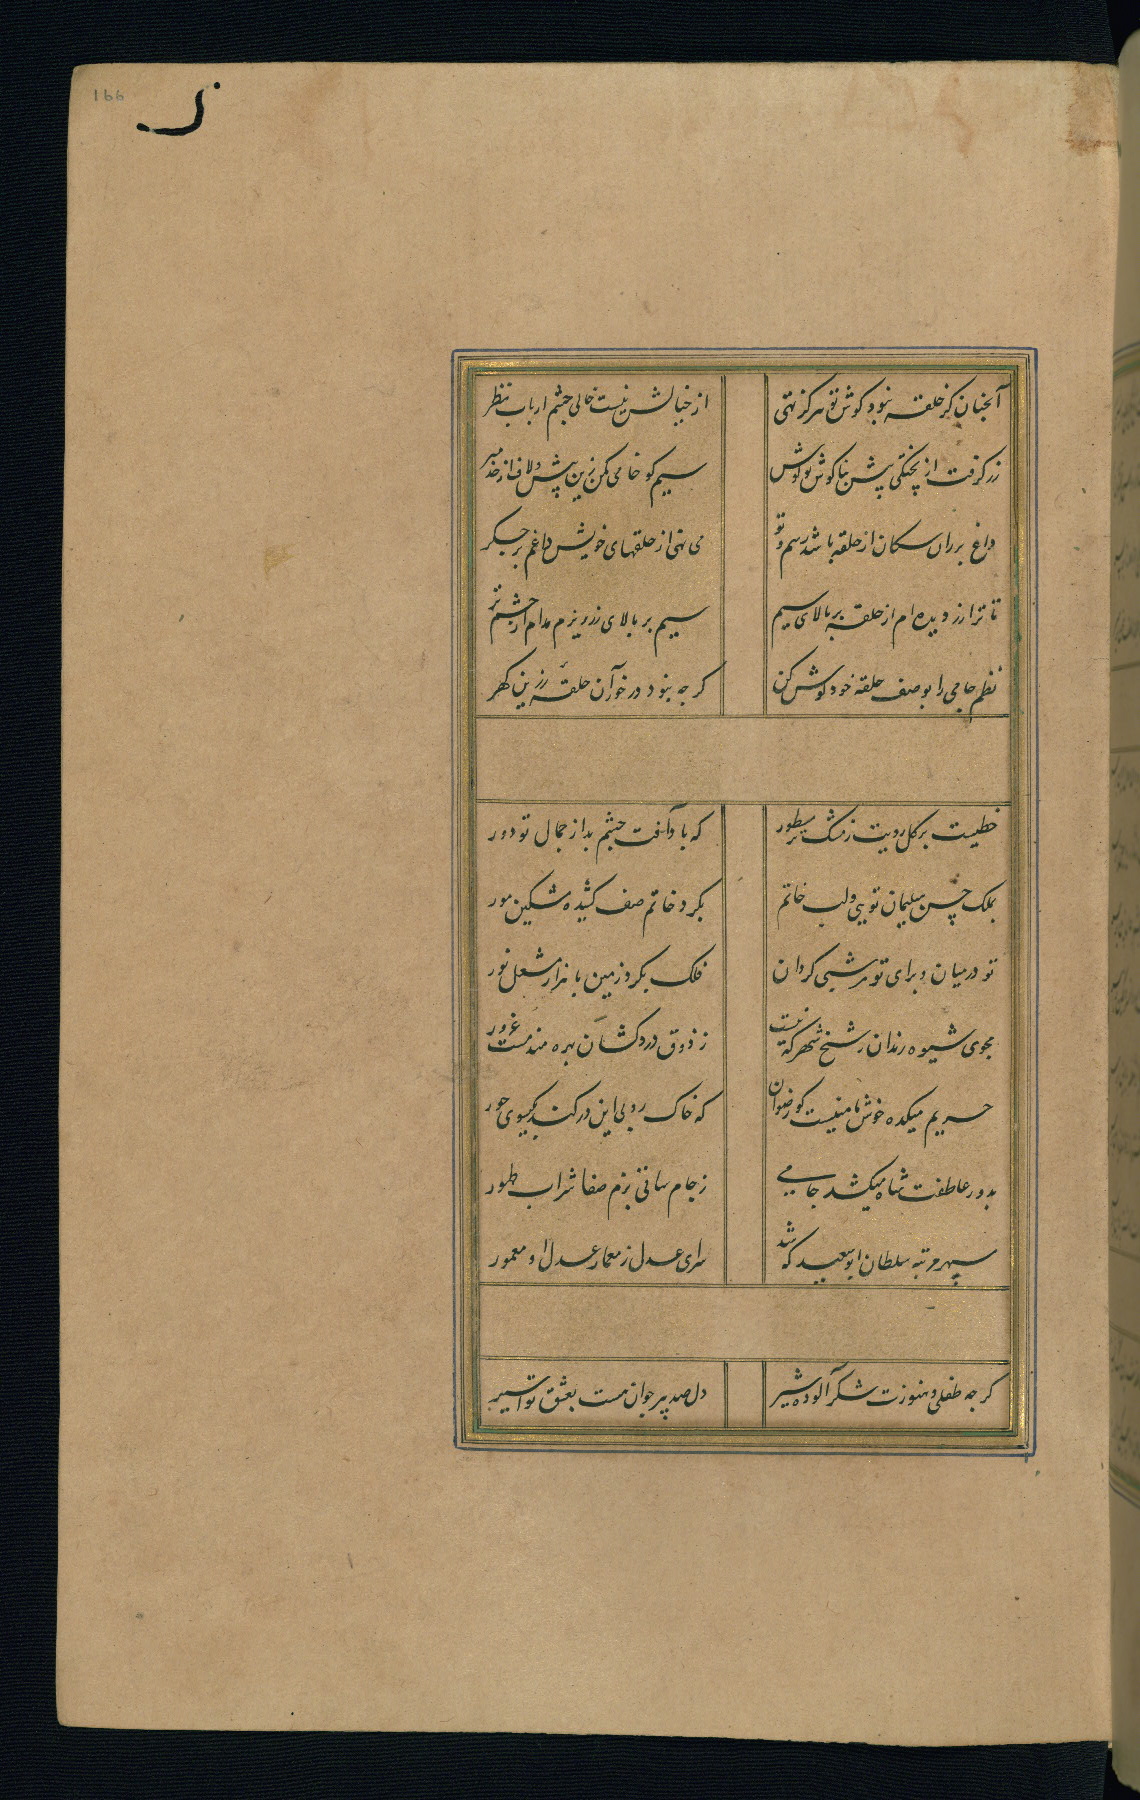 166
آنچنان کز حلقه نبود گوش تو هرگز تهی از خیالش نیست خالی چشم ارباب نظر
زر گرفت از پختگی پیش بناگوش تو گوش سیم کو خامی مکن زین پیش ولاف از خود مبر
داغ بر ران سکان از حلقه باشد رسم و تو می نهی از حلقهای خویش داغم بر جگر
تا ترا از زر دیده ام از حلقه بر بالای سیم سیم بر بالای زر ریزم مدام از چشم تر
نظم جامی را بوصف حلقه خود گوش کن کرچه نبود در خور آن حلقه زرین کهر
خطیست بر کل رویت ز مشک تر مسطور که باد آفت چشم بد از جمال تو دور
بملک حسن سلیمان تویی و لب خاتم بکرد خاتم صف کشیده مشکین مور
تو در میان و برای تو هر شبی کردان فلک بکرد زمین با هزار مشعل نور
مجوی شیوه رندان ز شیخ شهر که نیست ز ذوق دردکشان بهره مند مست غرور
حریم میکده خوش مامنیست کو رضوان که خاک روبی این در کند بکیسوی حور
بدور عاطفت شاه میکشد جامی ز جام ساقی بزم صفا شراب طهور
سپهر مرتبه سلطان ابوسعید که شد سرای عدل ز معمار عدل او معمور
کرچه طفلی و هنوزت شکر آلوده شیر دل صد پیر و جوان هست بعشق تو اسیر